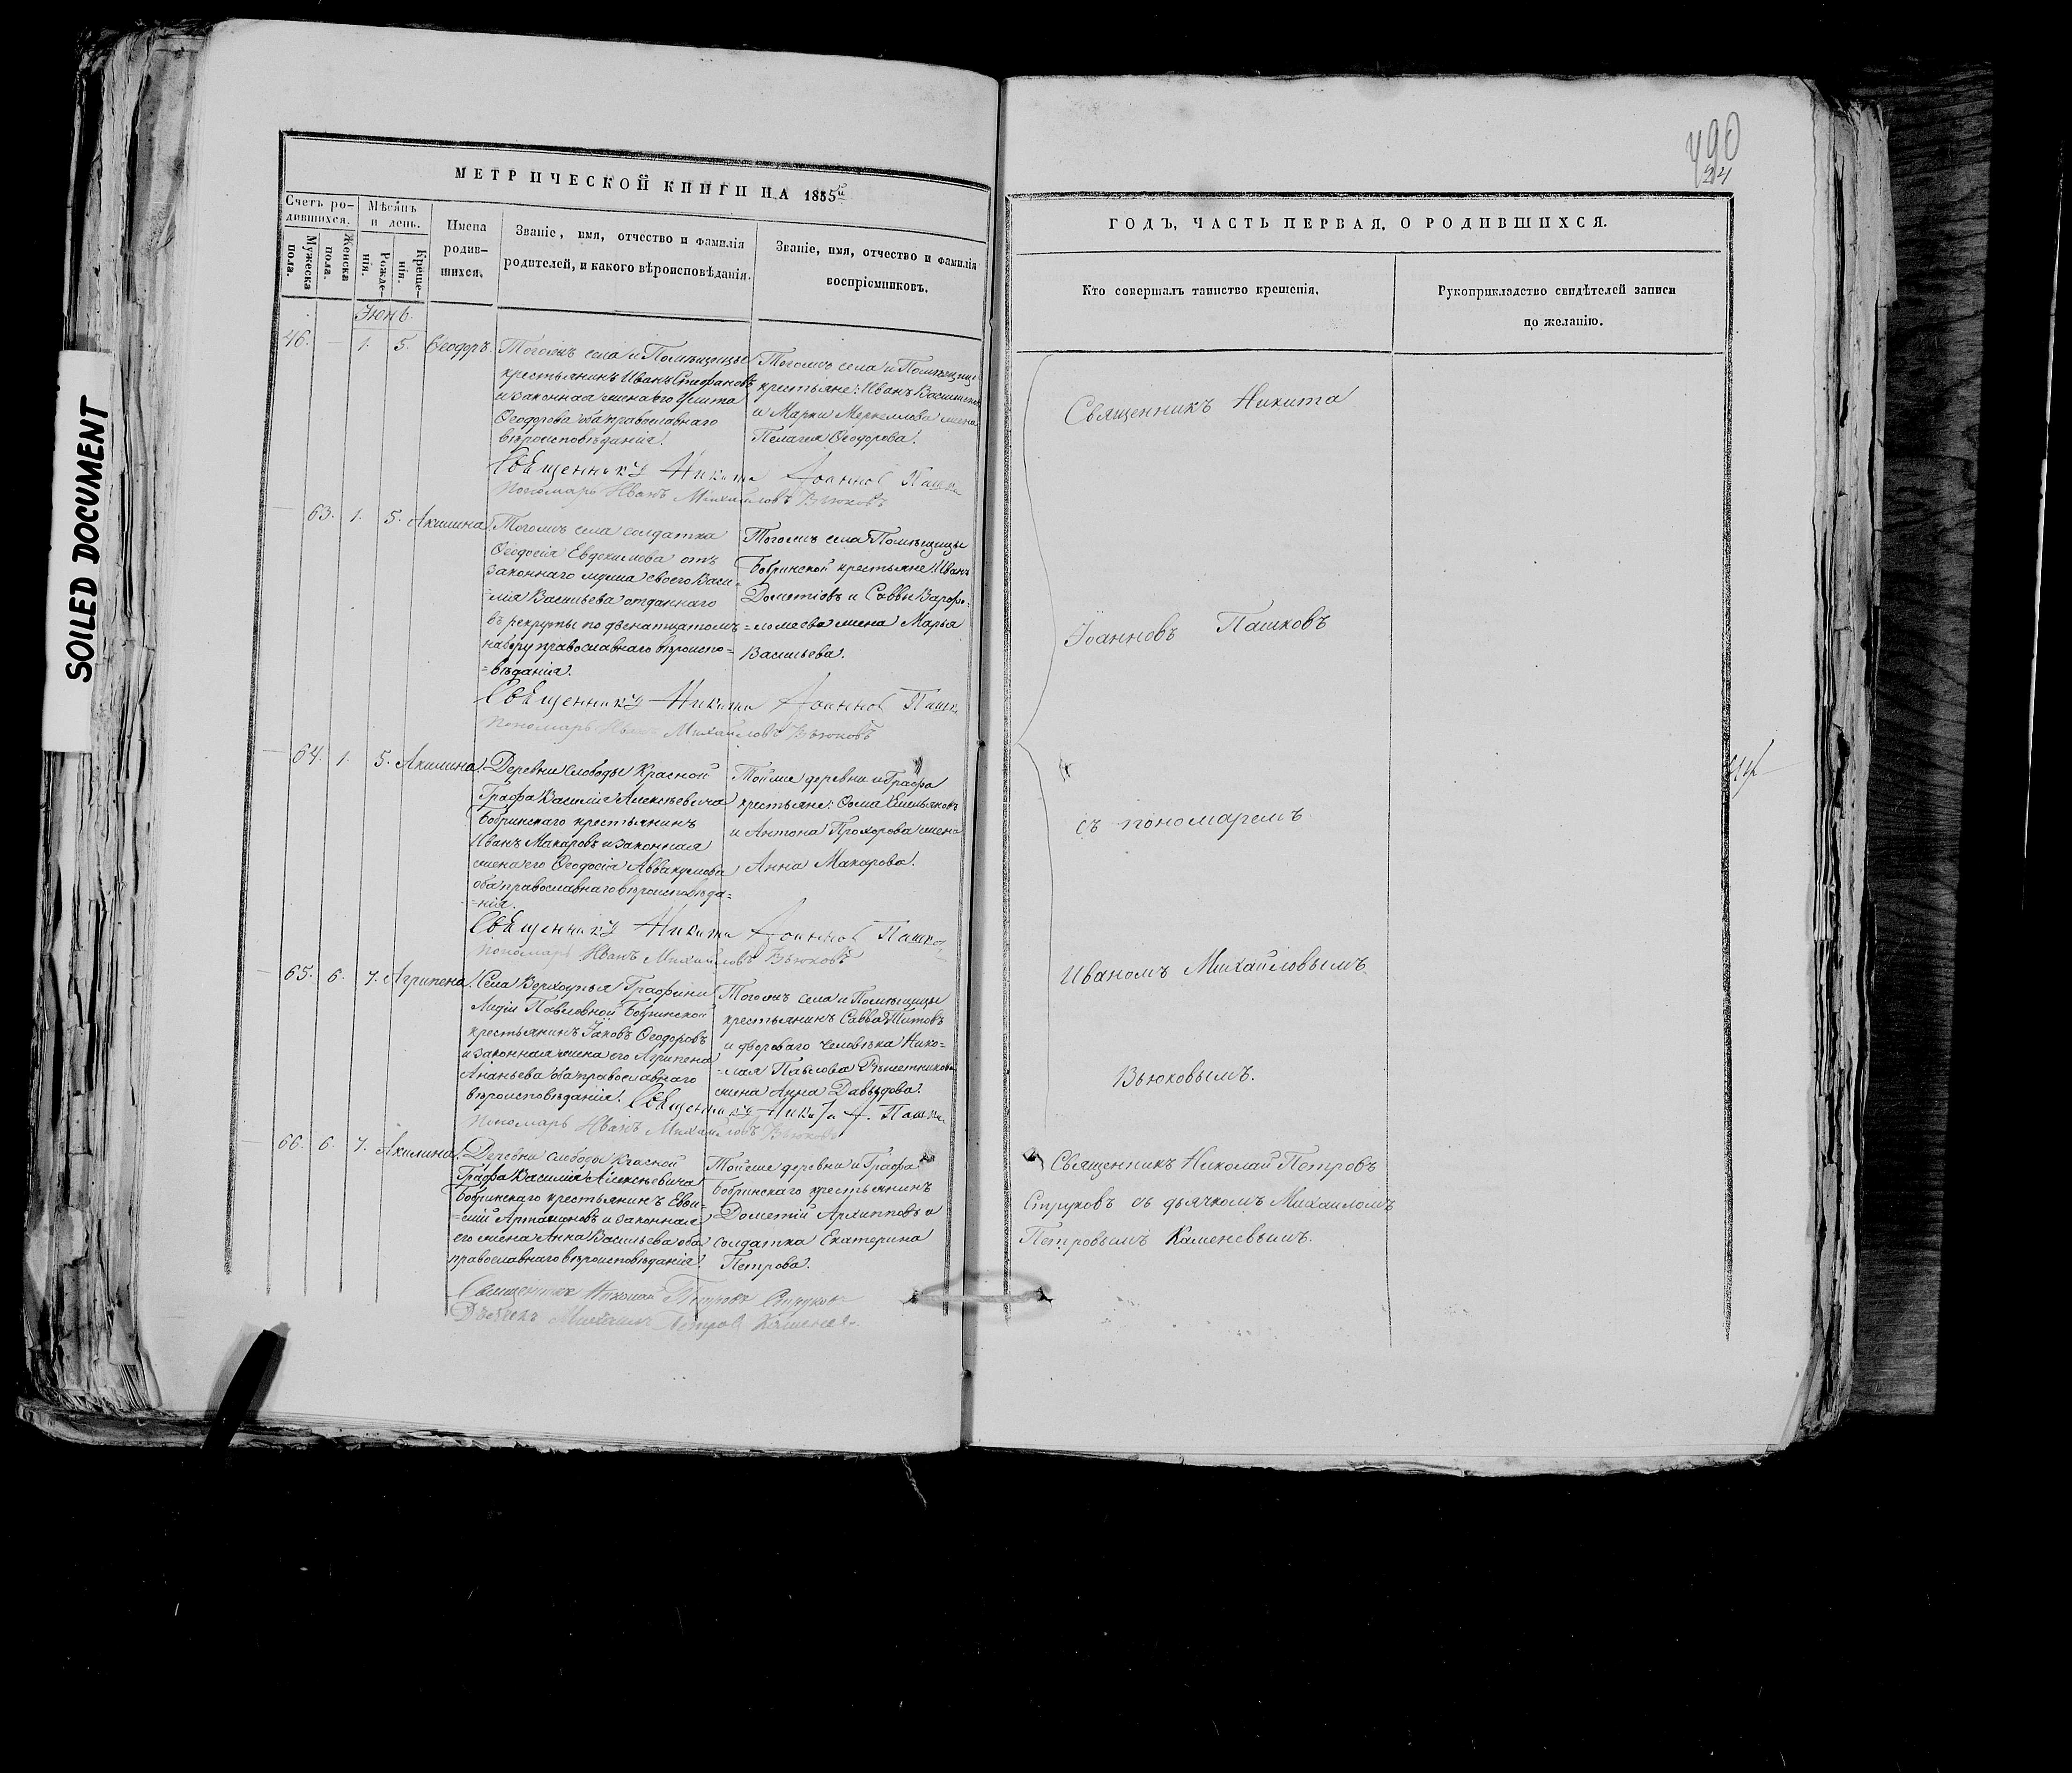 SOILED DOCUMENT
490
24
МЕТРИЧЕСКОЙ КНИГИ НА 1855й
Счетъ ро-
дившихся.
Мужеска
пола.
Женска
пола.
Мѣсяцъ
и день.
Рожде-
нія.
Креще-
нія.
Имена
родив-
шихся.
Званіе, имя, отчество и фамилія
родителей, и какого вѣроисповѣданія.
Званіе, имя, отчество и фамилія
воспріемниковъ.
Іюнь.
46. — 1. 5. Ѳеодоръ.
Тогожъ села и Помѣщицы
крестьянинъ Иванъ Стефановъ
и законная жена его Улита
Ѳеодорова оба православнаго
вѣроисповѣданія.
Тогожъ села и Помѣщицы
крестьяне: Иванъ
и Марки жена
Пелагея Ѳеодорова.
Священникъ Никита Іоаннов Пашко
Пономарь Иванъ Михайловъ Вьюковъ
— 63. 1. 5. Акилина.
Тогожъ села солдатка
Ѳеодосія Евдокимова отъ
законнаго мужа своего Васи-
лія Васильева отданнаго
въ рекруты по двенатцатомъ
набору православнаго вѣроиспо-
=вѣданія.
Тогожъ села Помѣщицы
Бобринской крестьяне Иванъ
Дометіовъ и Саввы Варфо-
=ломеева жена Марья
Васильева.
Священникъ Никита Іоаннов Пашк
Пономарь Иванъ Михайловъ Вьюковъ
— 64. 1. 5. Акилина.
Деревни Слободы Красной
Графа Василія Алексѣевича
Бобринскаго крестьянинъ
Иванъ Макаровъ и законная
жена его Ѳеодосія Аввакумова
оба православнаго вѣроисповѣда-
=нія.
Тойже деревни и Графа
крестьяне: Ѳома Емельяновъ
и Антона Прохорова жена
Анна Макарова.
Священникъ Никита Іоаннов Пашко
Пономарь Иванъ Михайловъ Вьюковъ
— 65. 6. 7. Агрипена.
Села Верхоупья Графини
Лидіи Павловной Бобринской
крестьянинъ Іаковъ Ѳеодоровъ
и законная жена его Агрипена
Ананьева оба православнаго
вѣроисповѣданія.
Тогожъ села и Помѣщицы
крестьянинъ Савва Титовъ
и двороваго человѣка Нико-
=лая Павлова
жена Анна Давыдова.
Священникъ Никита І. Пашко
Пономарь Иванъ Михайловъ Вьюковъ
— 66. 6. 7. Акилина.
Деревни слободы Красной
Графа Василія Алексѣевича
Бобринскаго крестьянинъ Евѳи-
=мій Артамоновъ и законная
его жена Анна Васильева оба
православнаго вѣроисповѣданія.
Тойже деревни и Графа
Бобринскаго крестьянинъ
Дометій Архипповъ и
солдатка Екатерина
Петрова.
Священникъ Николай Петровъ Струковъ
Дьячекъ Михаилъ Петровъ Каменев
ГОДЪ, ЧАСТЬ ПЕРВАЯ, О РОДИВШИХСЯ.
Кто совершалъ таинство крещенія.
Рукоприкладство свидѣтелей записи
по желанію.
Священникъ Никита
Іоанновъ Пашковъ
съ пономаремъ
Иваномъ Михайловымъ
Вьюковымъ.
Священникъ Николай Петровъ
Струковъ съ дьячкомъ Михаиломъ
Петровымъ Каменевымъ.